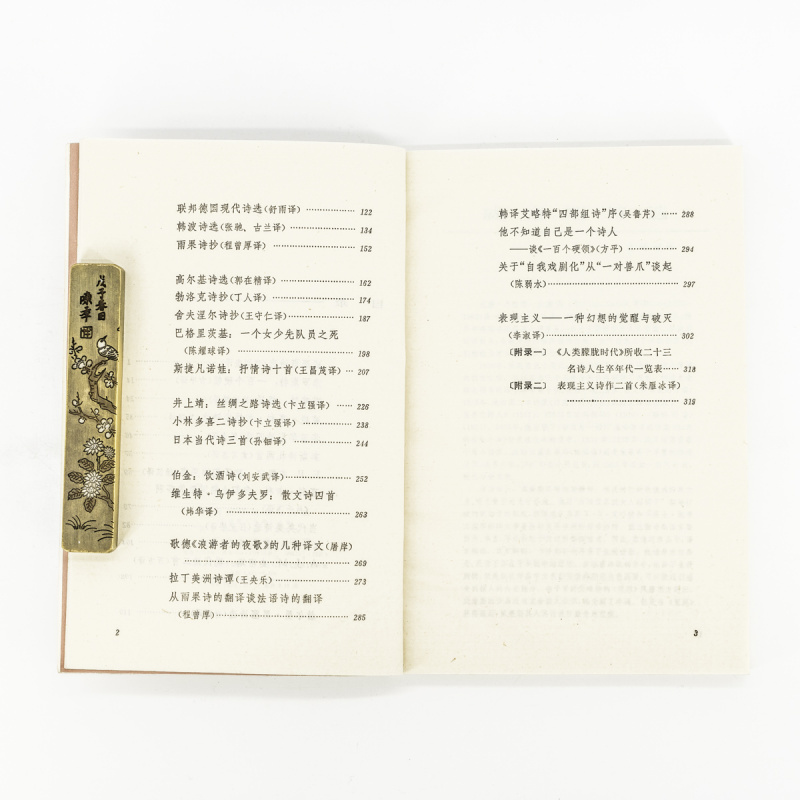 联邦德国现代诗选(舒雨译) ……………… 122
韩波诗选(张驰、古兰译) ……………… 134
雨果诗抄(程曾厚译) ……………… 152
高尔基诗选(郭在精译) ……………… 162
勃洛克诗抄(丁人译) ……………… 174
舍夫涅尔诗抄(王守仁译) ……………… 187
巴格里茨基：一个女少先队员之死
(陈耀球译) ……………… 198
斯捷凡诺娃：抒情诗十首(王昌茂译) … 207
井上靖：丝绸之路诗选(卞立强译) …… 226
小林多喜二诗抄(卞立强译) ……………… 238
日本当代诗三首(孙钿译) ……………… 244
伯金：饮酒诗(刘安武译) ……………… 252
维生特·乌伊多夫罗：散文诗四首
(炜华译) ……………… 263
歌德《浪游者的夜歌》的几种译文(屠岸)
……………… 269
拉丁美洲诗谭(王央乐) ……………… 273
从雨果诗的翻译谈法语诗的翻译
(程曾厚) ……………… 285
2
戊子春日
韩译艾略特“四部组诗”序(吴鲁芹) …… 288
他不知道自己是一个诗人
——谈《一百个硬领》(方平) ……………… 294
关于“自我戏剧化”从“一对兽爪”谈起
(陈弱水) ……………… 297
表现主义——一种幻想的觉醒与破灭
(李淑译) ……………… 302
〔附录一〕 《人类朦胧时代》所收二十三
名诗人生卒年代一览表…… 318
〔附录二〕 表现主义诗作二首(朱雁冰译)
……………… 319
3